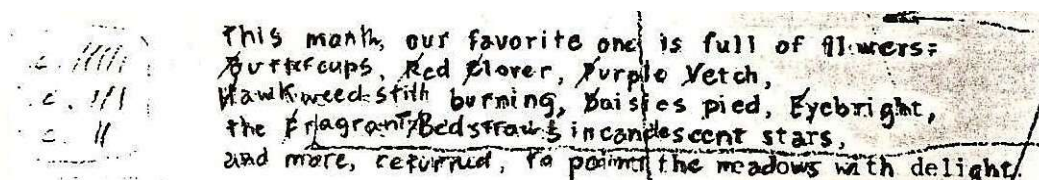 This month, our favorite one is full of flowers:
Buttercups, Red Clover, Purple Vetch,
Hawkweed still burning, Daisies pied, Eyebright,
the Fragrant Bedstraw's incandescent stars,
and more, returned, to paint the meadows with delight.